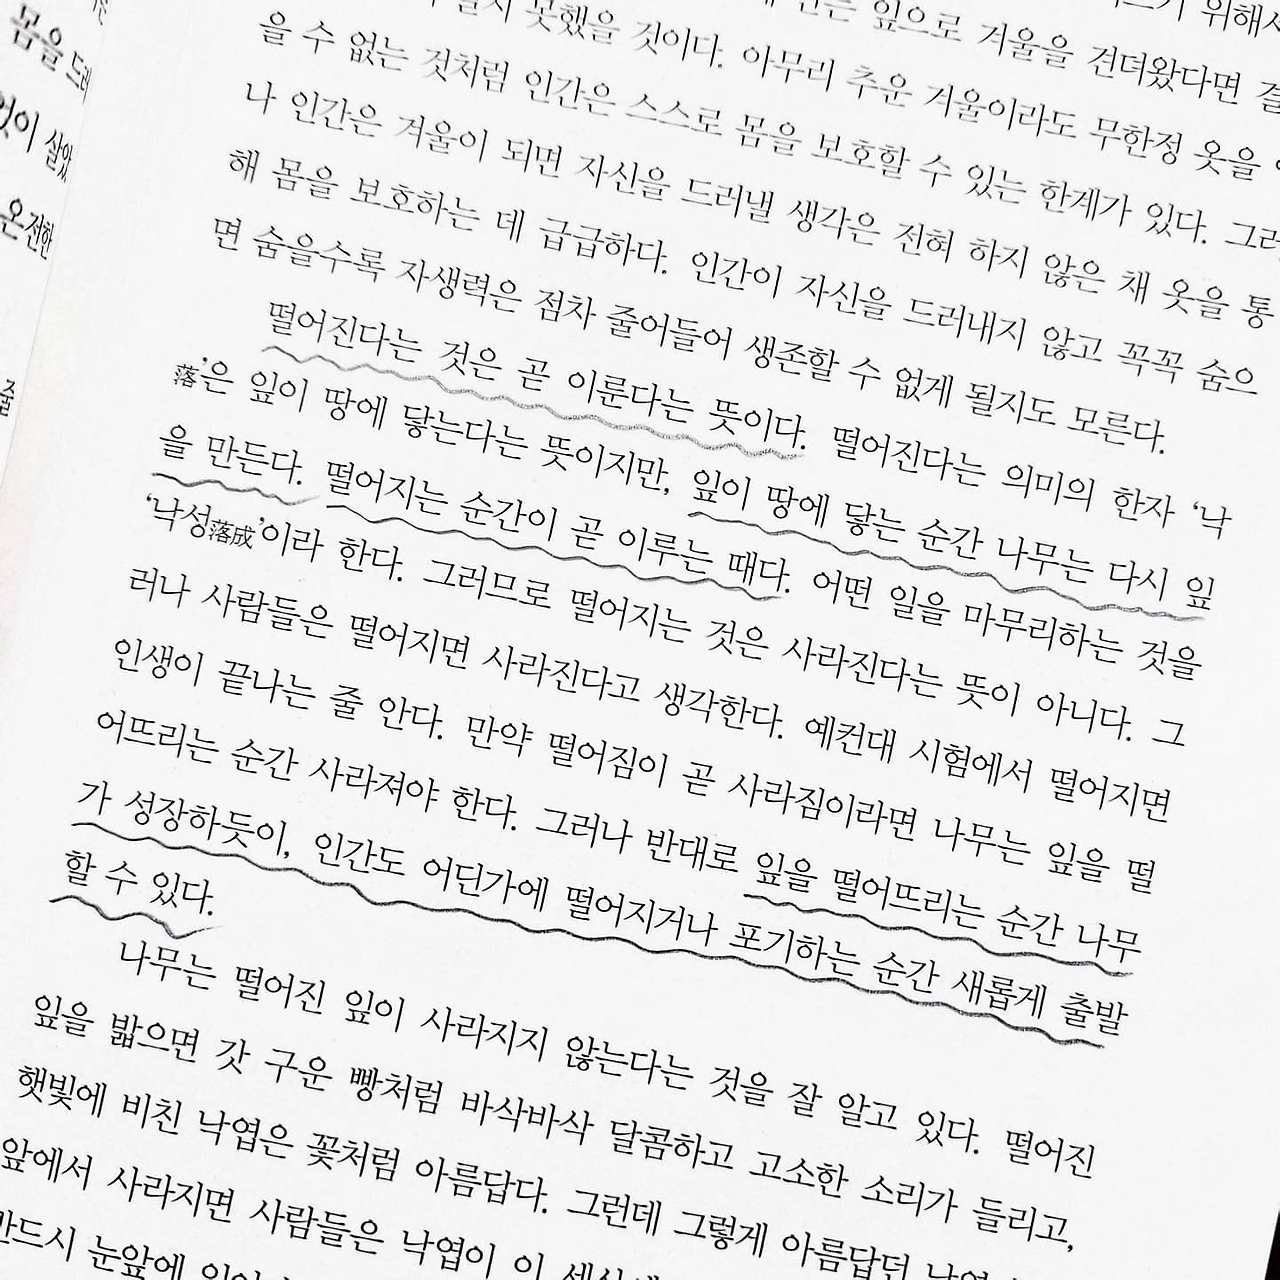 몸을
살았
온전한
줄
위해서
잎으로 겨울을 견뎌왔다면 결
못했을 것이다. 아무리 추운 겨울이라도 무한정 옷을
을 수 없는 것처럼 인간은 스스로 몸을 보호할 수 있는 한계가 있다. 그러
나 인간은 겨울이 되면 자신을 드러낼 생각은 전혀 하지 않은 채 옷을 통
해 몸을 보호하는 데 급급하다. 인간이 자신을 드러내지 않고 꼭꼭 숨으
면 숨을수록 자생력은 점차 줄어들어 생존할 수 없게 될지도 모른다.
떨어진다는 것은 곧 이룬다는 뜻이다. 떨어진다는 의미의 한자 ‘낙
落’은 잎이 땅에 닿는다는 뜻이지만, 잎이 땅에 닿는 순간 나무는 다시 잎
을 만든다. 떨어지는 순간이 곧 이루는 때다. 어떤 일을 마무리하는 것을
‘낙성落成’이라 한다. 그러므로 떨어지는 것은 사라진다는 뜻이 아니다. 그
러나 사람들은 떨어지면 사라진다고 생각한다. 예컨대 시험에서 떨어지면
인생이 끝나는 줄 안다. 만약 떨어짐이 곧 사라짐이라면 나무는 잎을 떨
어뜨리는 순간 사라져야 한다. 그러나 반대로 잎을 떨어뜨리는 순간 나무
가 성장하듯이, 인간도 어딘가에 떨어지거나 포기하는 순간 새롭게 출발
할 수 있다.
나무는 떨어진 잎이 사라지지 않는다는 것을 잘 알고 있다. 떨어진
잎을 밟으면 갓 구운 빵처럼 바삭바삭 달콤하고 고소한 소리가 들리고,
햇빛에 비친 낙엽은 꽃처럼 아름답다. 그런데 그렇게 아름답던 낙엽
앞에서 사라지면 사람들은 낙엽이 이
눈앞에